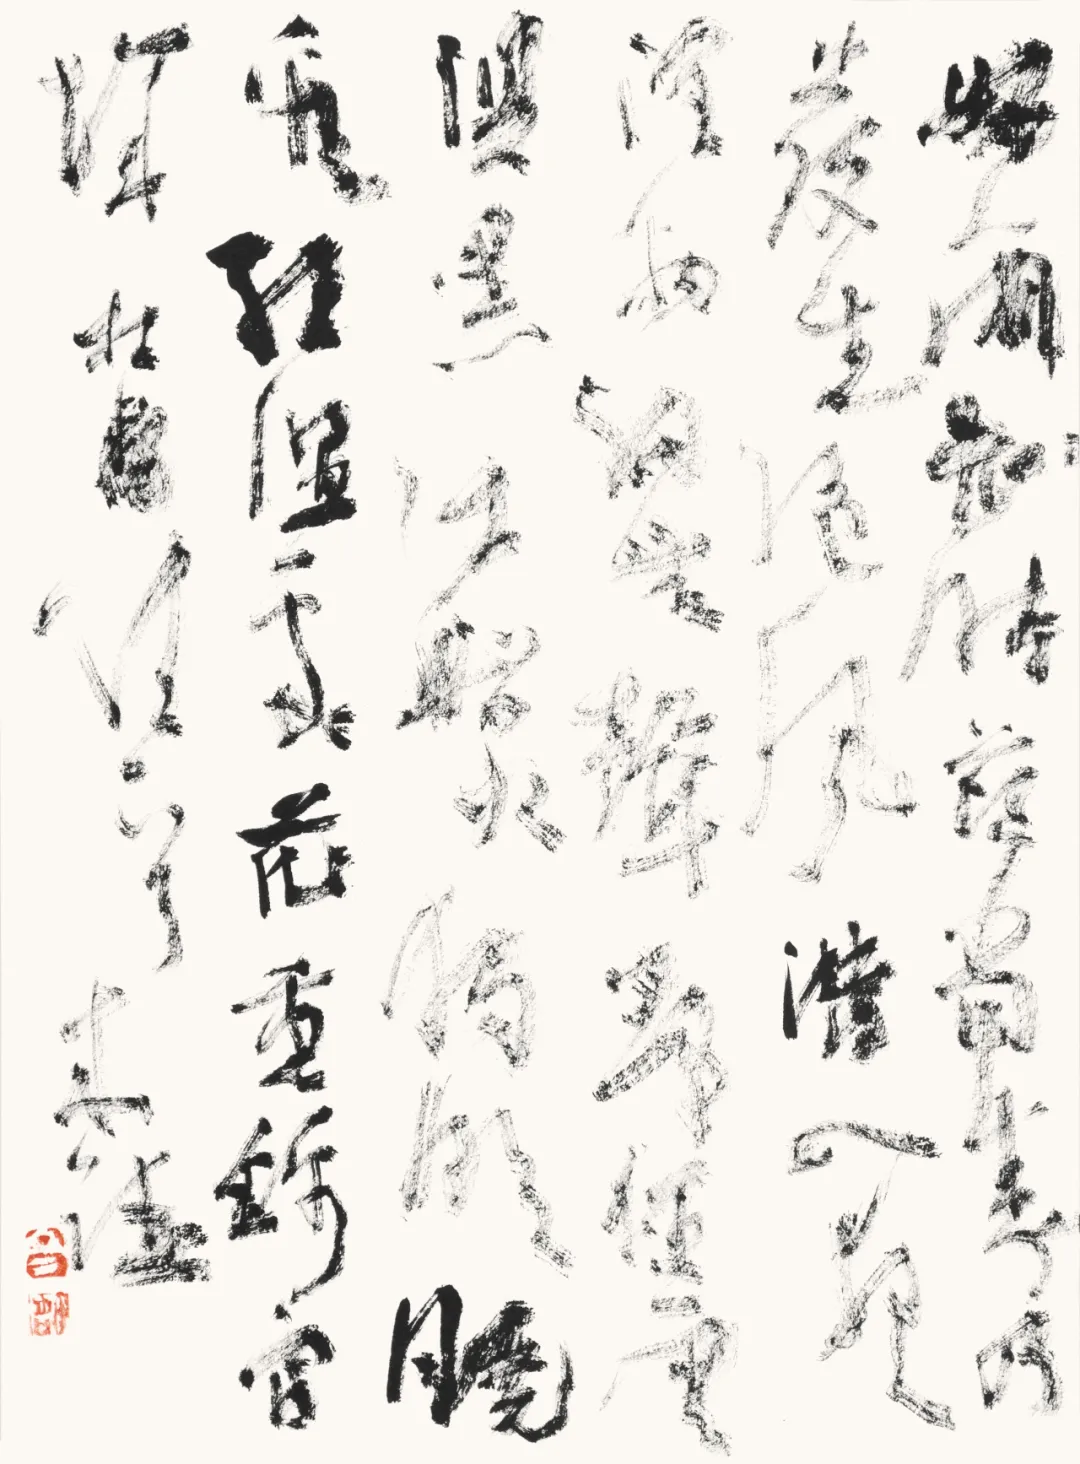 好雨知時節當春乃
發生隨風潛入夜
潤物細無聲野徑雲
俱黑江船火獨明曉
看紅濕處花重錦官
城 杜